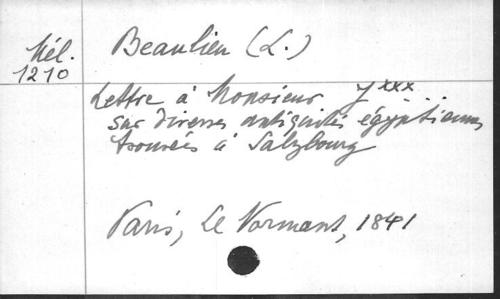 Mél.
1210
Beaulieu (L.)
Lettre à Monsieur J xxx ...
sur diverses antiquités égyptiennes
trouvées à Salzbourg
Paris, Le Normant, 1841